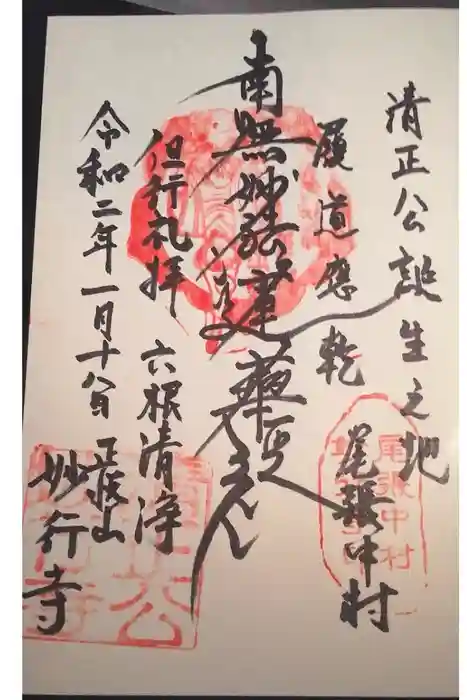 清正公誕生之地
尾張中村
履道應乾
南無妙法蓮華経
但行礼拝 六根清浄
令和二年一月十八日 正悦山
妙行寺
尾張中村
清正公